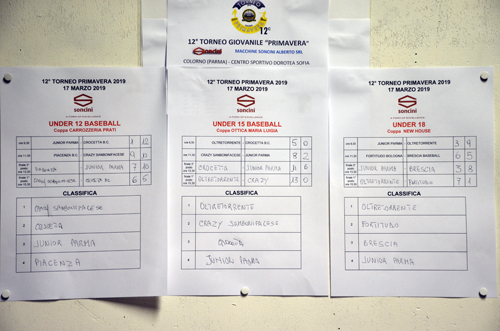 12°
12° TORNEO GIOVANILE "PRIMAVERA"
soncini MACCHINE SONCINI ALBERTO SRL
COLORNO (PARMA) - CENTRO SPORTIVO DOROTEA SOFIA
12° TORNEO PRIMAVERA 2019
17 MARZO 2019
soncini
UNDER 12 BASEBALL
Coppa CARROZZERIA PRATI
JUNIOR PARMA CROCETTA B.C. 1 12
PIACENZA B.C. CRAZY SAMBONIFACESE 9 11
JUNIOR PARMA 7 10
6 5
CLASSIFICA
1 CRAZY SAMBONIFACESE
2
3 JUNIOR PARMA
4 PIACENZA
12° TORNEO PRIMAVERA 2019
17 MARZO 2019
soncini
UNDER 15 BASEBALL
Coppa OTTICA MARIA LUIGIA
OLTRETORRENTE CROCETTA B.C. 5 0
CRAZY SAMBONIFACESE JUNIOR PARMA 8 2
CROCETTA JUNIOR PARMA
OLTRETORRENTE CRAZY 13 0
CLASSIFICA
1 OLTRETORRENTE
2 CRAZY SAMBONIFACESE
3 CROCETTA
4 JUNIOR PARMA
12° TORNEO PRIMAVERA 2019
17 MARZO 2019
soncini
UNDER 18
Coppa NEW HOUSE
JUNIOR PARMA OLTRETORRENTE 3 9
FORTITUDO BOLOGNA BRESCIA BASEBALL 6 5
JUNIOR PARMA BRESCIA 3 8
OLTRETORRENTE FORTITUDO 7 1
CLASSIFICA
1 OLTRETORRENTE
2 FORTITUDO
3 BRESCIA
4 JUNIOR PARMA